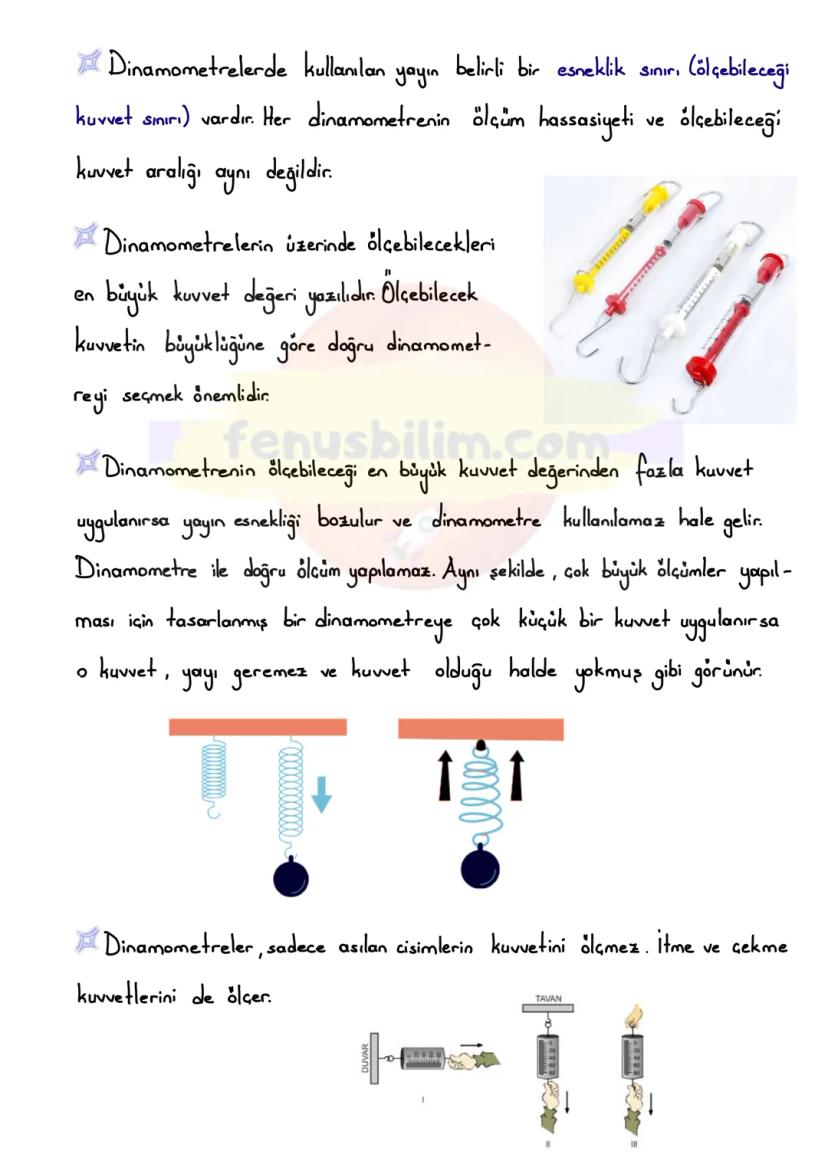 Dinamometrelerde kullanılan yayın belirli bir esneklik sınırı (ölçebileceği
kuvvet sınırı) vardır. Her dinamometrenin ölçüm hassasiyeti ve ölçebileceği
kuvvet aralığı aynı değildir.
Dinamometrelerin üzerinde ölçebilecekleri
en büyük kuvvet değeri yazılıdır. Ölçebilecek
kuvvetin büyüklüğüne göre doğru dinamomet-
reyi seçmek önemlidir.
fenusbilim.com
Dinamometrenin ölçebileceği en büyük kuvvet değerinden fazla kuvvet
uygulanırsa yayın esnekliği bozulur ve dinamometre kullanılamaz hale gelir.
Dinamometre ile doğru ölçüm yapılamaz. Aynı şekilde, çok büyük ölçümler yapıl-
ması için tasarlanmış bir dinamometreye çok küçük bir kuvvet uygulanırsa
o kuvvet, yayı geremez ve kuvvet olduğu halde yokmuş gibi görünür.
Dinamometreler, sadece asılan cisimlerin kuvvetini ölçmez. İtme ve çekme
kuvvetlerini de ölçer.
DUVAR
I
TAVAN
0
20
40
60
80
II
0
20
40
60
80
III